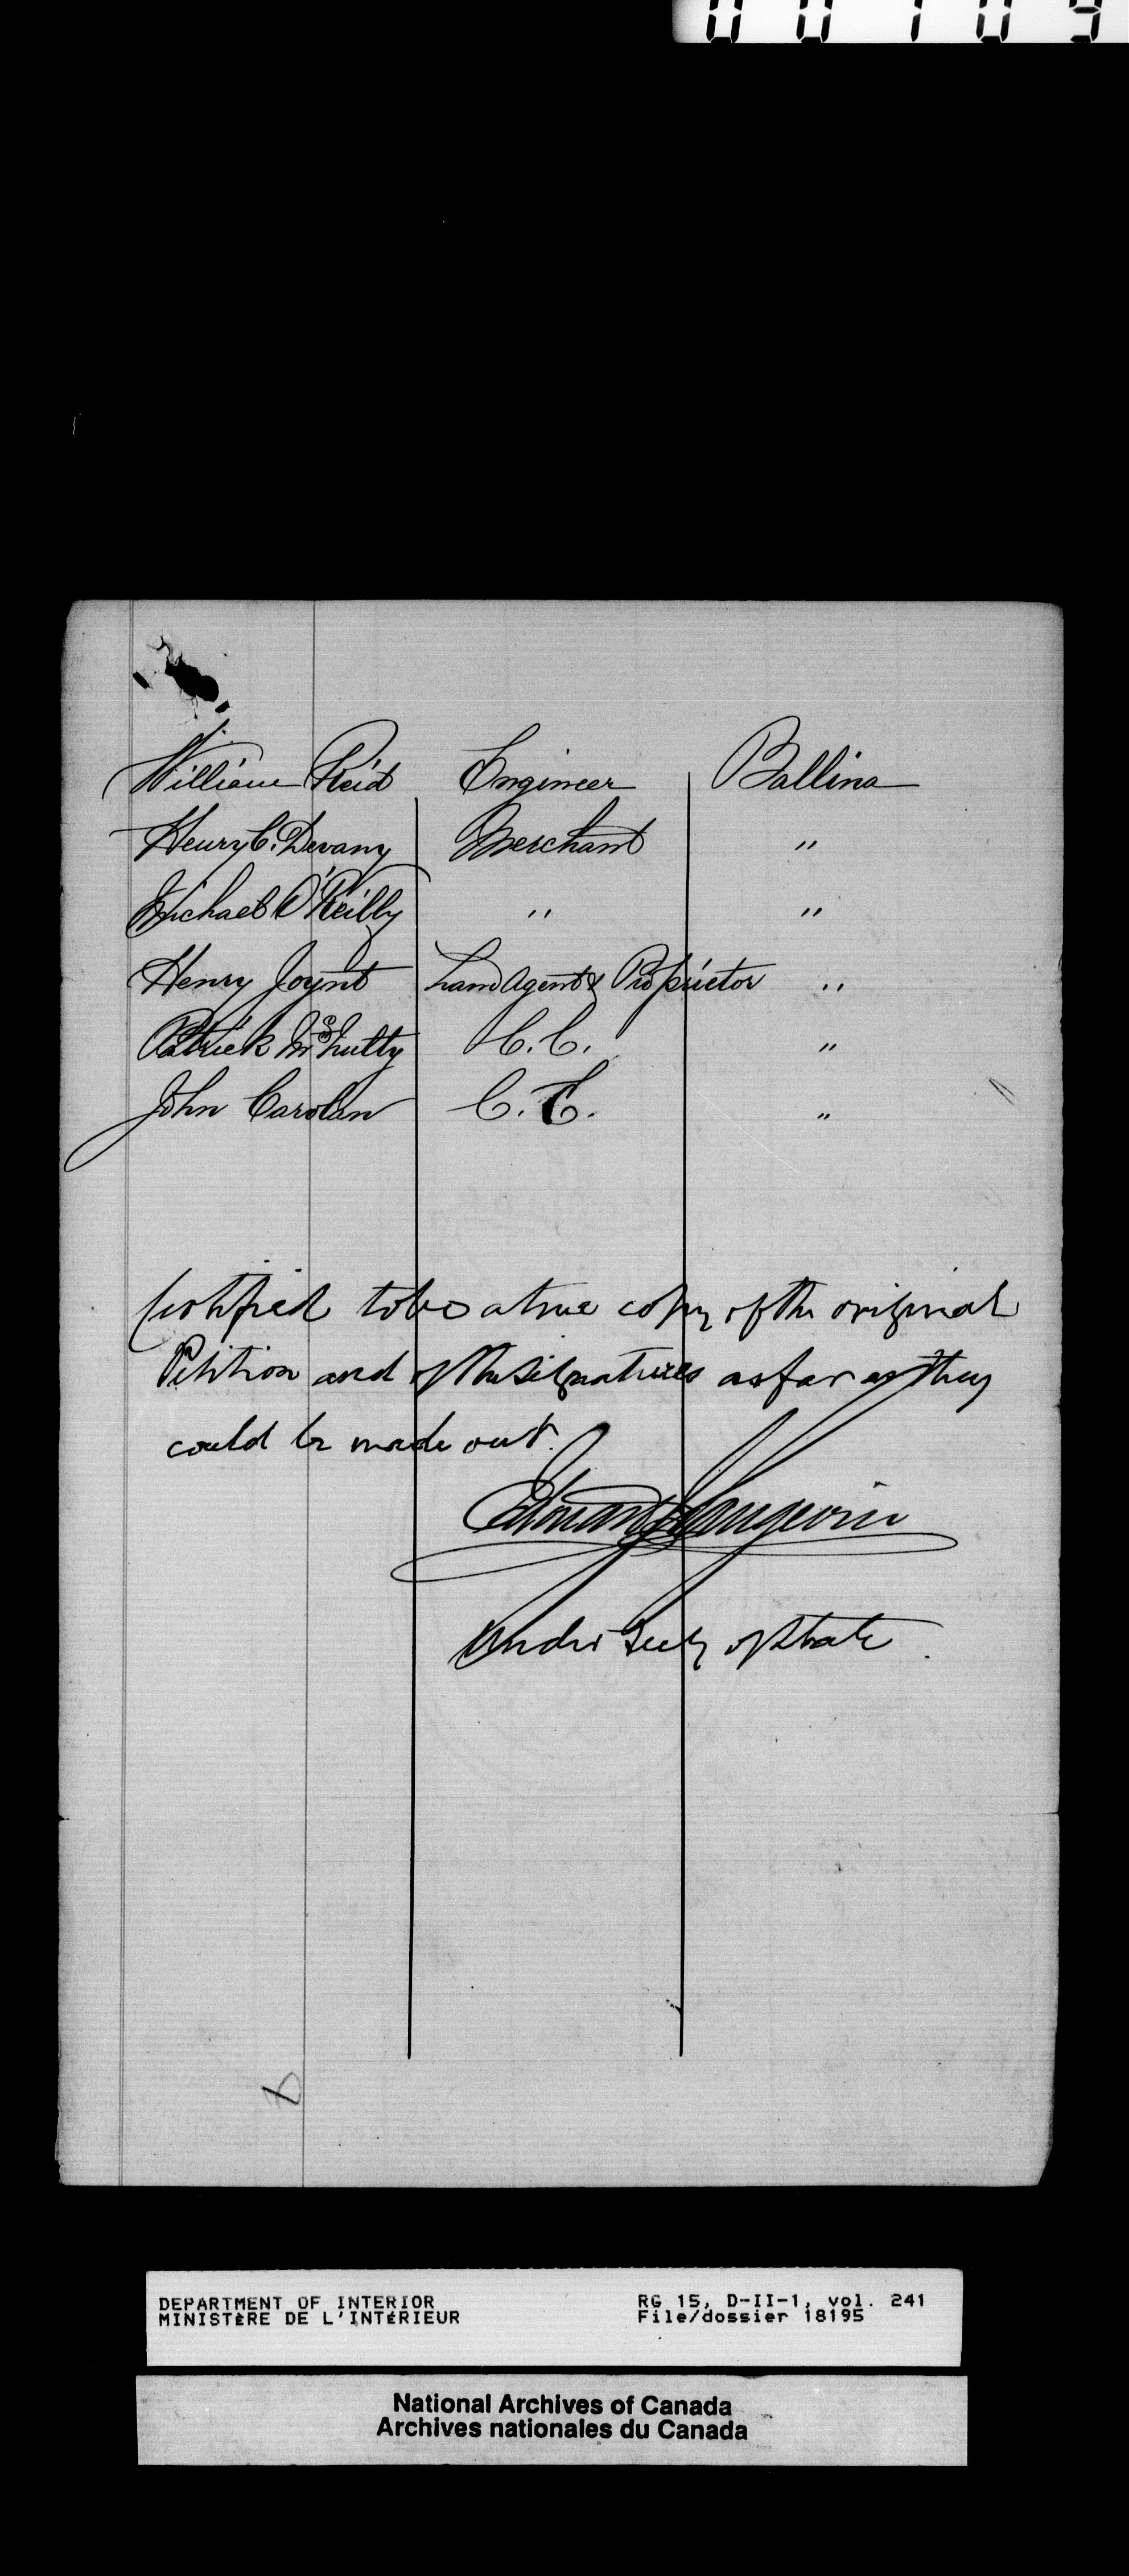 00109
William Reid Engineer Ballina
Henry C. Devany Merchant "
Michael O'Reilly " "
Henry Joynt Land Agent & Proprietor "
Patrick McNulty C.C. "
John Carolan C.C. "
Certified to be a true copy of the original
Petition and of the signatures as far as they
could be made out.
Edouard J Langevin
Under Secy of State.
DEPARTMENT OF INTERIOR RG 15, D-II-1, vol. 241
MINISTÈRE DE L'INTÉRIEUR File/dossier 18195
National Archives of Canada
Archives nationales du Canada